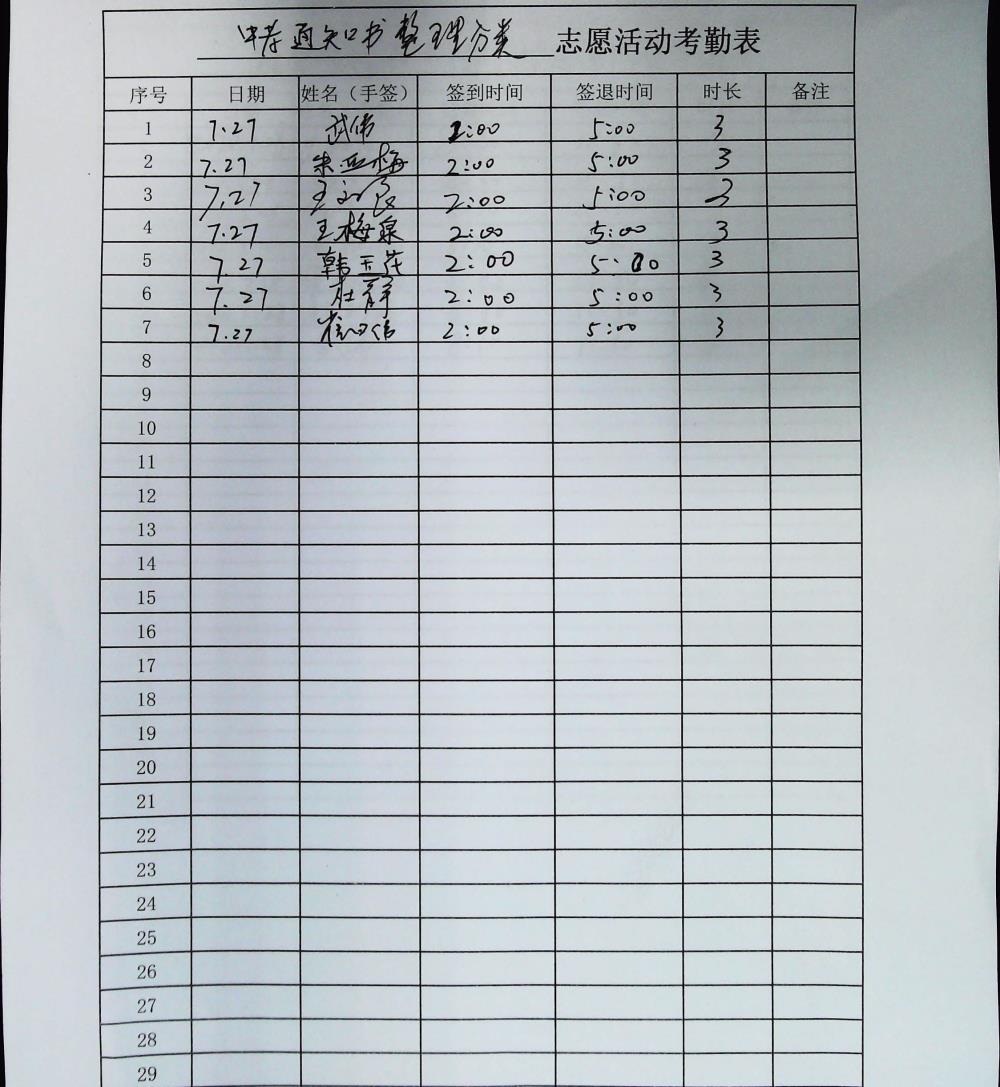 中考通知书整理分类 志愿活动考勤表
序号 日期 姓名（手签） 签到时间 签退时间 时长 备注
1 7.27 武伟 2:00 5:00 3
2 7.27 朱亚梅 2:00 5:00 3
3 7.27 王 2:00 5:00 3
4 7.27 王梅泉 2:00 5:00 3
5 7.27 韩玉花 2:00 5:00 3
6 7.27 杜群 2:00 5:00 3
7 7.27 2:00 5:00 3
8
9
10
11
12
13
14
15
16
17
18
19
20
21
22
23
24
25
26
27
28
29